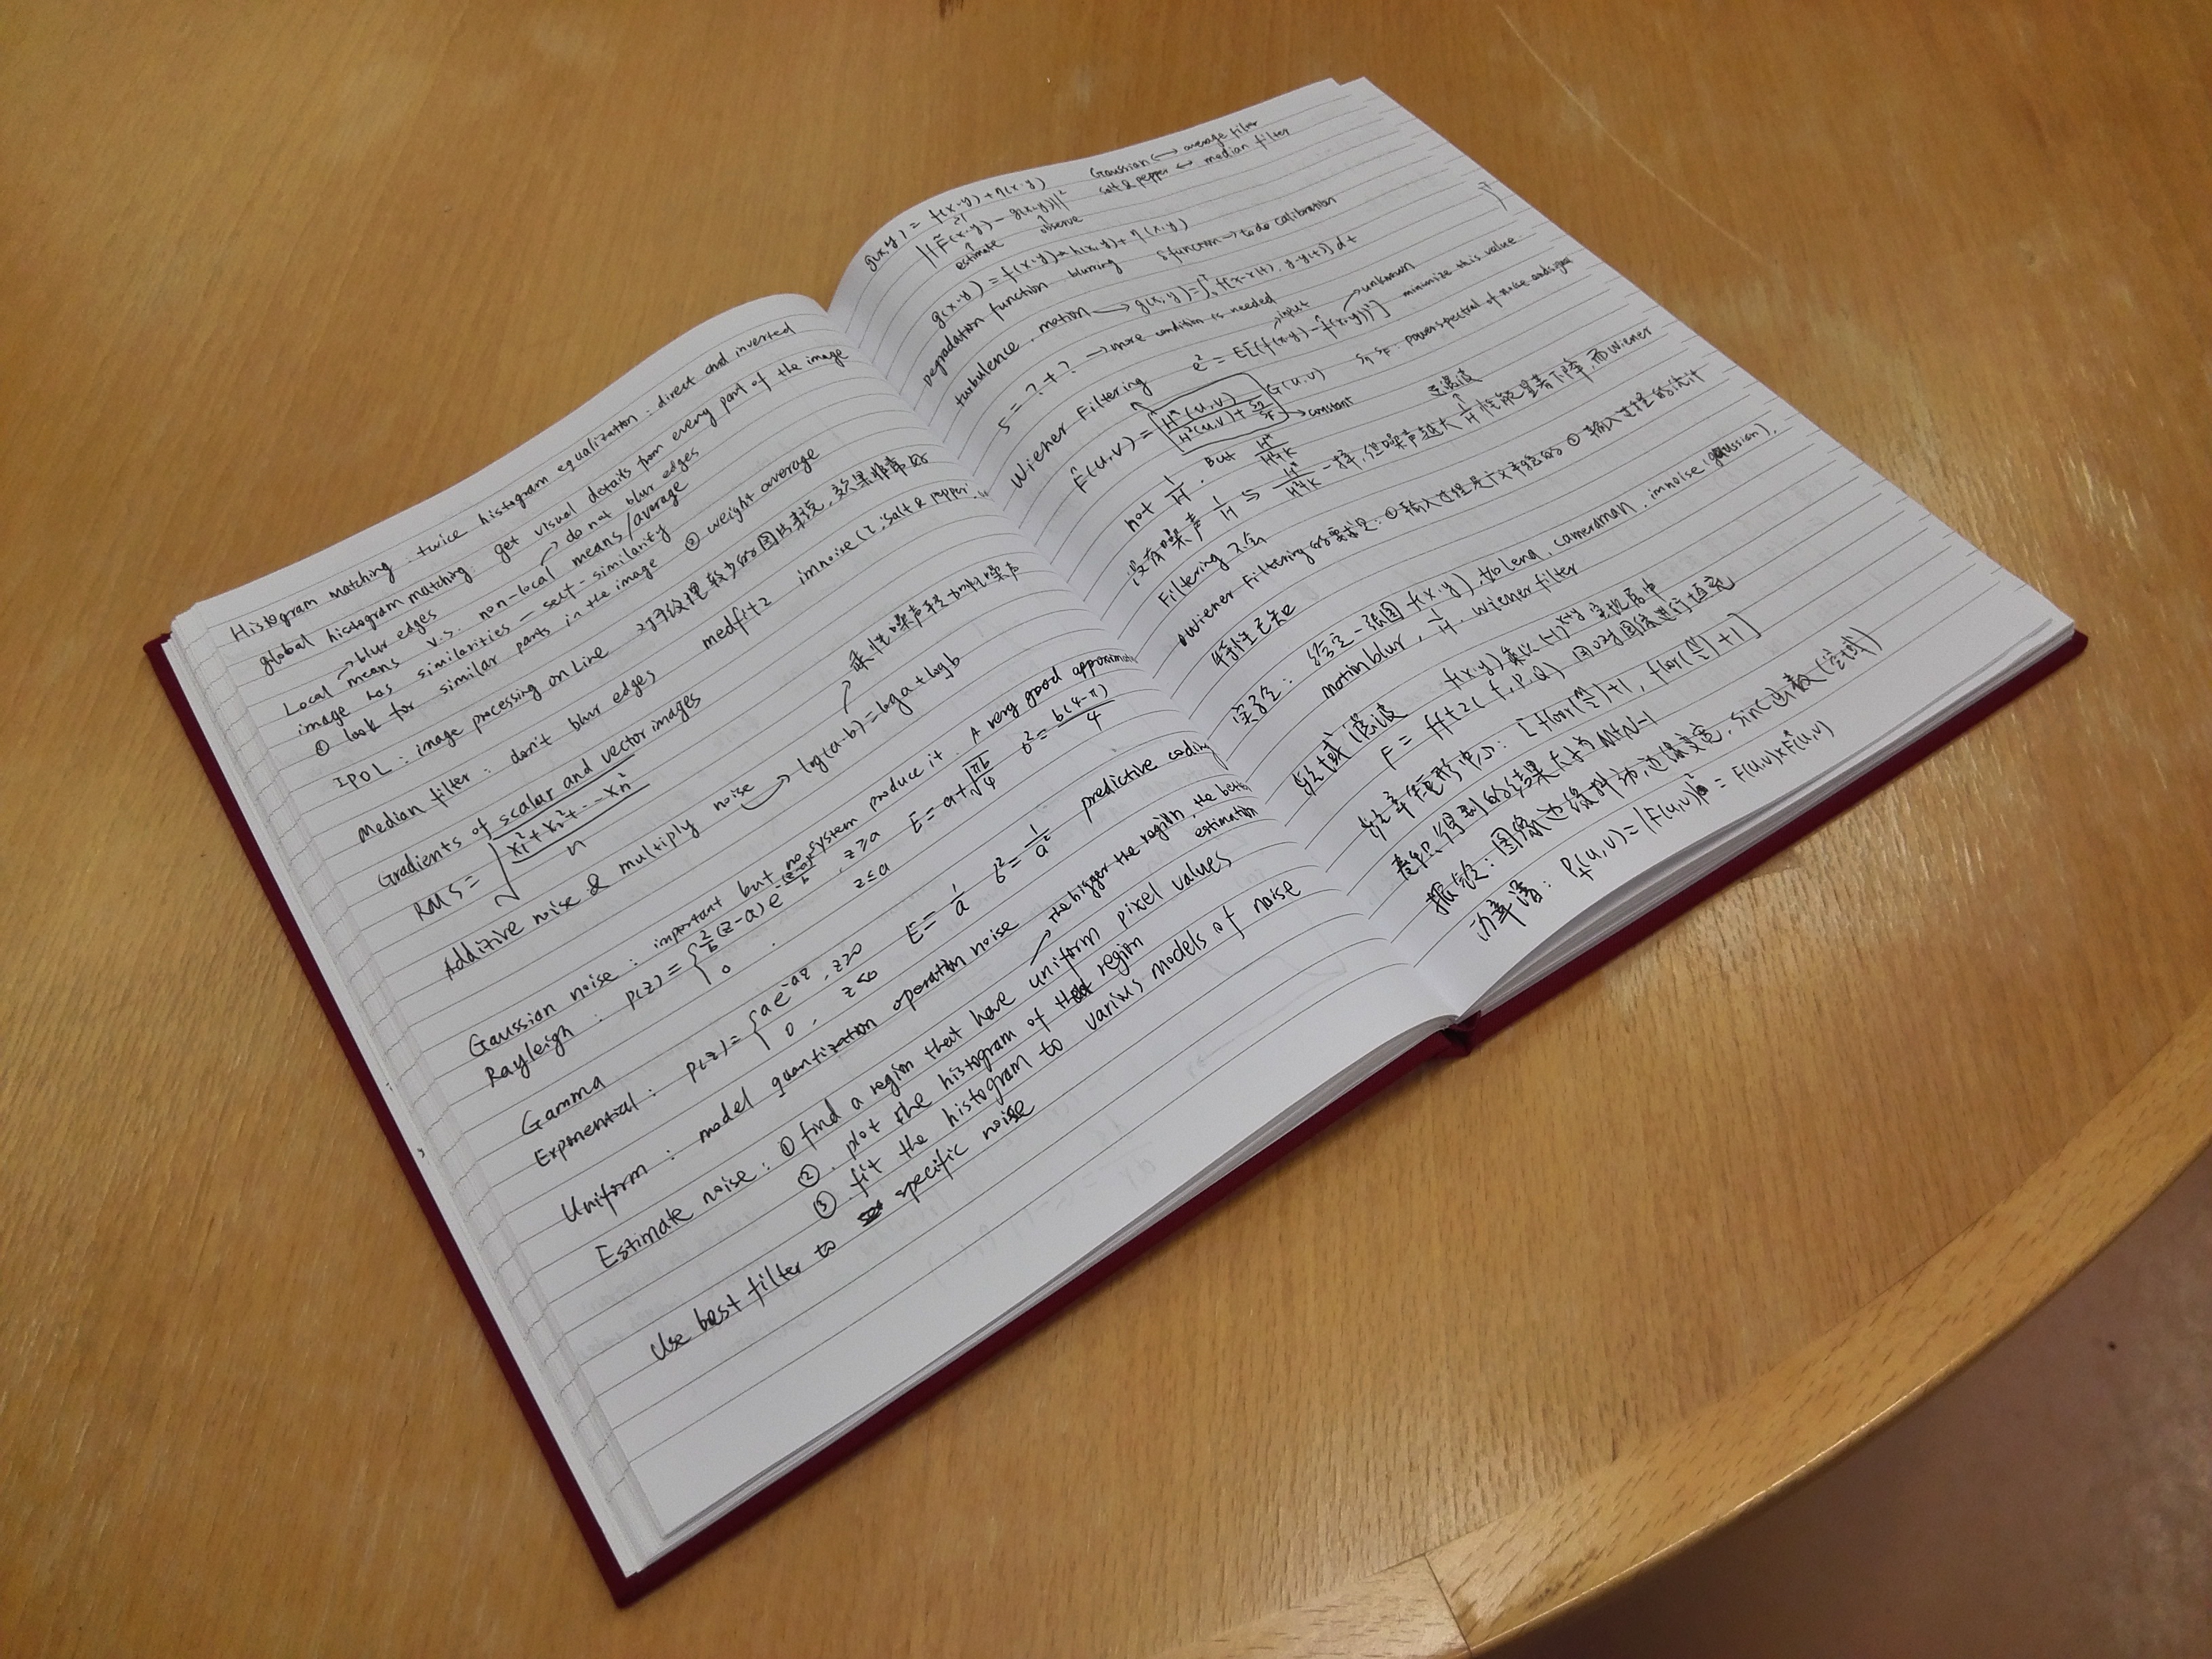 Histogram matching : twice histogram equalization : direct and inverted
global histogram matching : get visual details from every part of the image
→ blur edges → do not blur edges
Local means v.s. non-local means/average
image has similarities — self-similarity
① look for similar parts in the image ② weight average
IPOL : image processing on Line 对于纹理较少的图片来说，效果非常好
Median filter : don't blur edges medfit2 imnoise(I, 'salt & pepper',
Gradients of scalar and vector images
RMS = √((x₁²+x₂²+…xₙ²)/n)
→ 乘性噪声转加性噪声
Additive noise & multiply noise → log(a·b) = log a + log b
Gaussian noise : important but no system produce it. A very good approximati
Rayleigh : p(z) = { 2/b (z-a) e^(-(z-a)²/b) , z ≥ a E = a + √(πb/4) σ² = b(4-π)/4
0 z ≤ a
Gamma
Exponential : p(z) = { a e^(-az) , z ≥ 0 E = 1/a σ² = 1/a² predictive coding
0 , z < 0
Uniform : model quantization operation noise → the bigger the region, the better estimation
Estimate noise : ① find a region that have uniform pixel values
② plot the histogram of the region
③ fit the histogram to varius models of noise
Use best filter to specific noise
g(x,y) = f(x,y) + η(x,y) Gaussian ↔ average filter
||F̂(x,y) - g(x,y)||² salt & pepper ↔ median filter
estimate observe
g(x,y) = f(x,y) * h(x,y) + η(x,y)
Degradation function blurring δ function → to do calibration
turbulence . motion → g(x,y) = ∫₀ᵀ f(x-x(t), y-y(t)) dt
5 = ? + ? → more condition is needed
→ input → unknown
Wiener Filtering e² = E[(f(x,y) - f̂(x,y))²] minimize this value
F̂(u,v) = [H*(u,v) / (H²(u,v) + Sη/Sf)] G(u,v) Sη Sf : power spectral of noise and signal
→ constant
not 1/H . But H*/(H²+K) 逆滤波
没有噪声 1/H 与 H*/(H²+K) 一样，但噪声越大 1/H 性能显著下降，而Wiener
Filtering 不会
Wiener Filtering的要求是：① 输入过程是广义平稳的 ② 输入过程的统计
特性已知
实验： 给定一张图 f(x,y), 如 lena, cameraman, imnoise (gaussian),
motion blur , 1/H . wiener filter
频域滤波 f(x,y) 乘以 (-1)^(x+y) 实现居中
F = fft2( f, P, Q) 可以对图像进行填充
频率矩形中心： [floor(M/2)+1, floor(N/2)+1]
卷积得到的结果大小为 M+N-1
振铃：图像边缘抖动，边缘变宽，sinc函数(空域)
功率谱： P_f(u,v) = |F(u,v)|² = F(u,v) × F*(u,v)